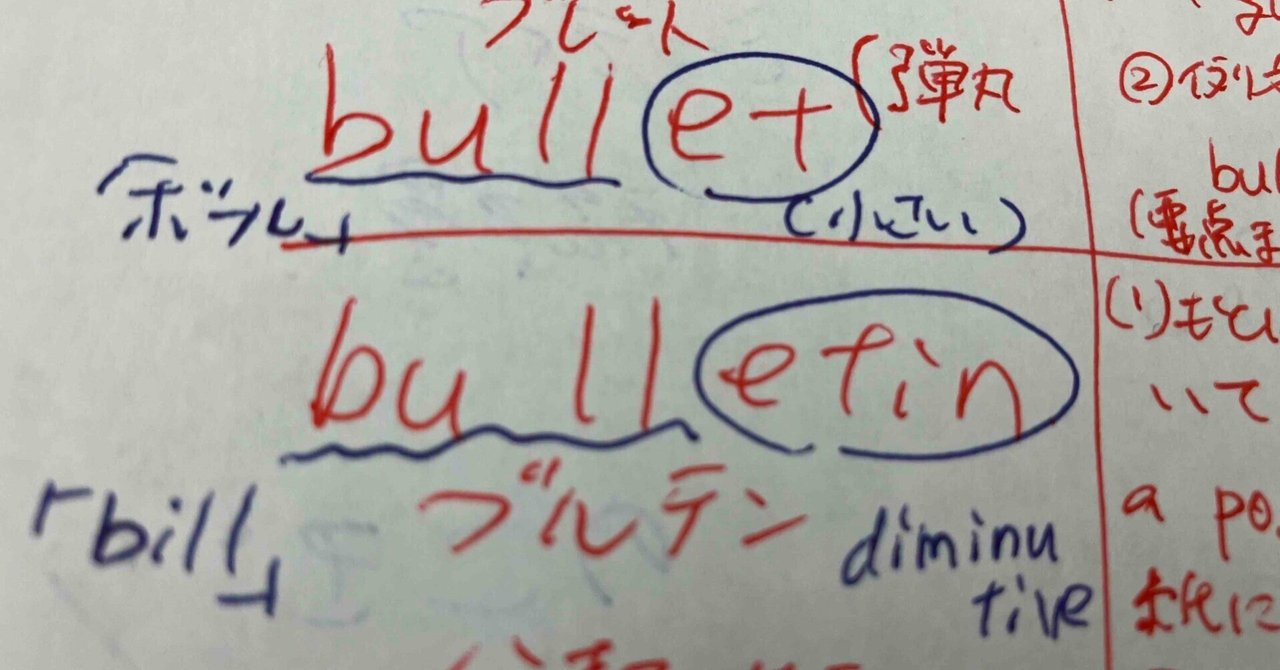 ブレット
bullet
弾丸
「ボール」
(小さい)
bulletin
「bill」
ブルテン
diminu
tive
②
bul
(要点ま
(1)
いて
a po